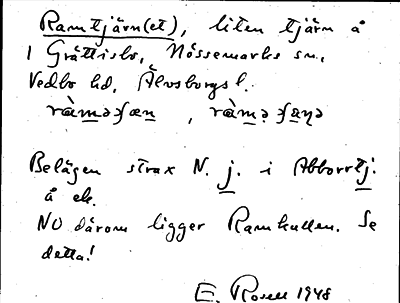 Ramtjärn(et), liten tjärn å
1 Grättisbo, Nössemarks sn.,
Vedbo hd, Älvsborgs l.
ràmə
Belägen strax N. j. i Abborrtj.
å ek.
NO därom ligger Ramkullen. Se
detta!
E. Rosell 1948